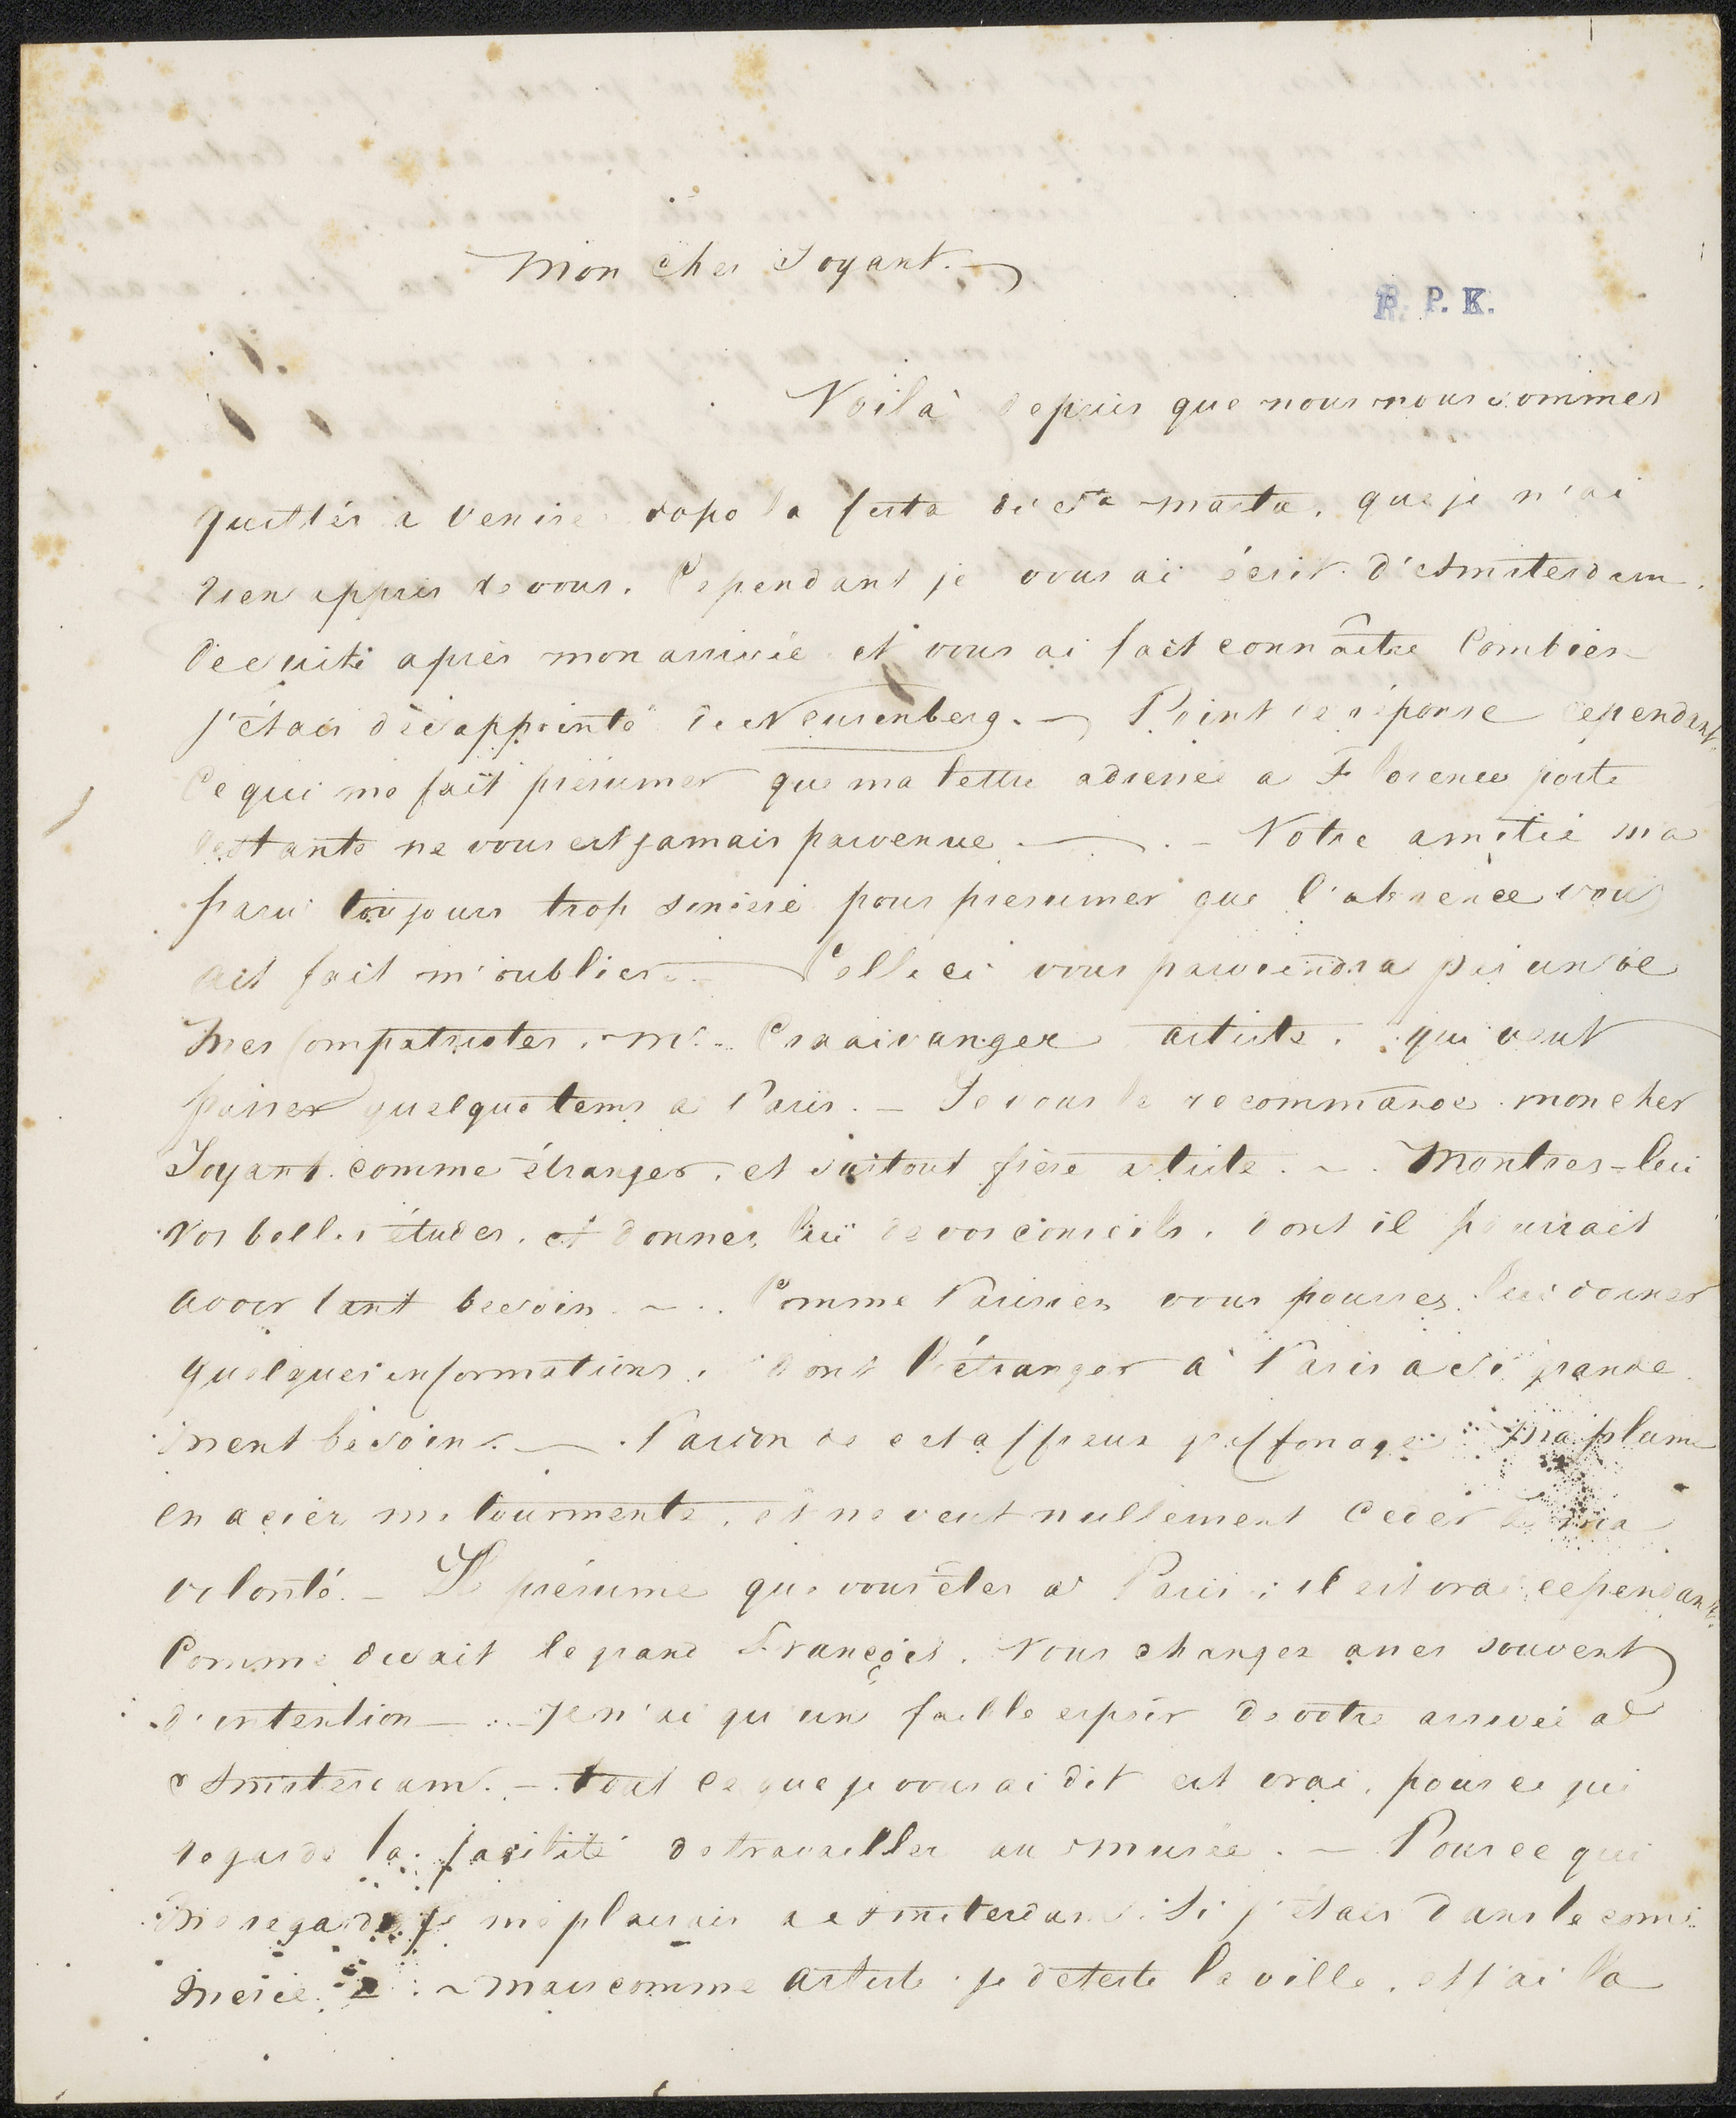 Mon cher Joyant.
R. P. K.
Voilà depuis que nous nous sommes
quittés a Venise dopo la festa di Sta Marta, que je n'ai
rien appris de vous. Cependant je vous ai écrit d'Amsterdam.
de suite après mon arrivée et vous ai fait connaître Combien
j'étais désappointé de Neurenberg. — Point de réponse cependant.
Ce qui me fait présumer que ma lettre adressée a Florence poste
restante ne vous est jamais parvenue. — Notre amitié m'a
paru toujours trop sincere pour presumer que l'absence vous
ait fait m'oublier. — Celle ci vous parviendra par un de
mes Compatriotes, Mr. Craaivanger artiste, qui veut
passer quelque tems a Paris. — Je vous le recommande mon cher
Joyant comme étranger, et surtout frère artiste. — Montres-lui
vos belles études, et donnes lui de vos conseils, dont il pourrait
avoir tant besoin. — Comme Parisien vous pourres lui donner
quelques informations, dont l'étranger à Paris a si grande
ment besoin. — Pardon de cet affreux griffonage ma plume
en acier me tourmente, et ne veut nullement ceder à ma
volonté. — Je présume que vous êtes a Paris; il est vrai cependant
Comme disait le grand François. Vous changez asses souvent
d'intention — Je n'ai qu'un faible espoir de votre arrivée a
Amsterdam. — tout ce que je vous ai dit est vrai, pour ce qui
regarde la facilité de travailler au musée. — Pour ce qui
me regarde je me plairais a Amsterdam. Si j'étais dans le com
merce — Mais comme artiste je deteste la ville, et j'ai la